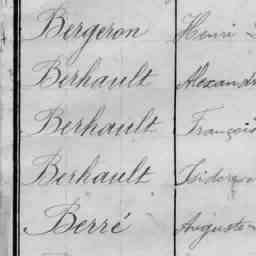 Bergeron Henri
Berhault Alexand
Berhault François
Berhault Isidore
Berré Auguste